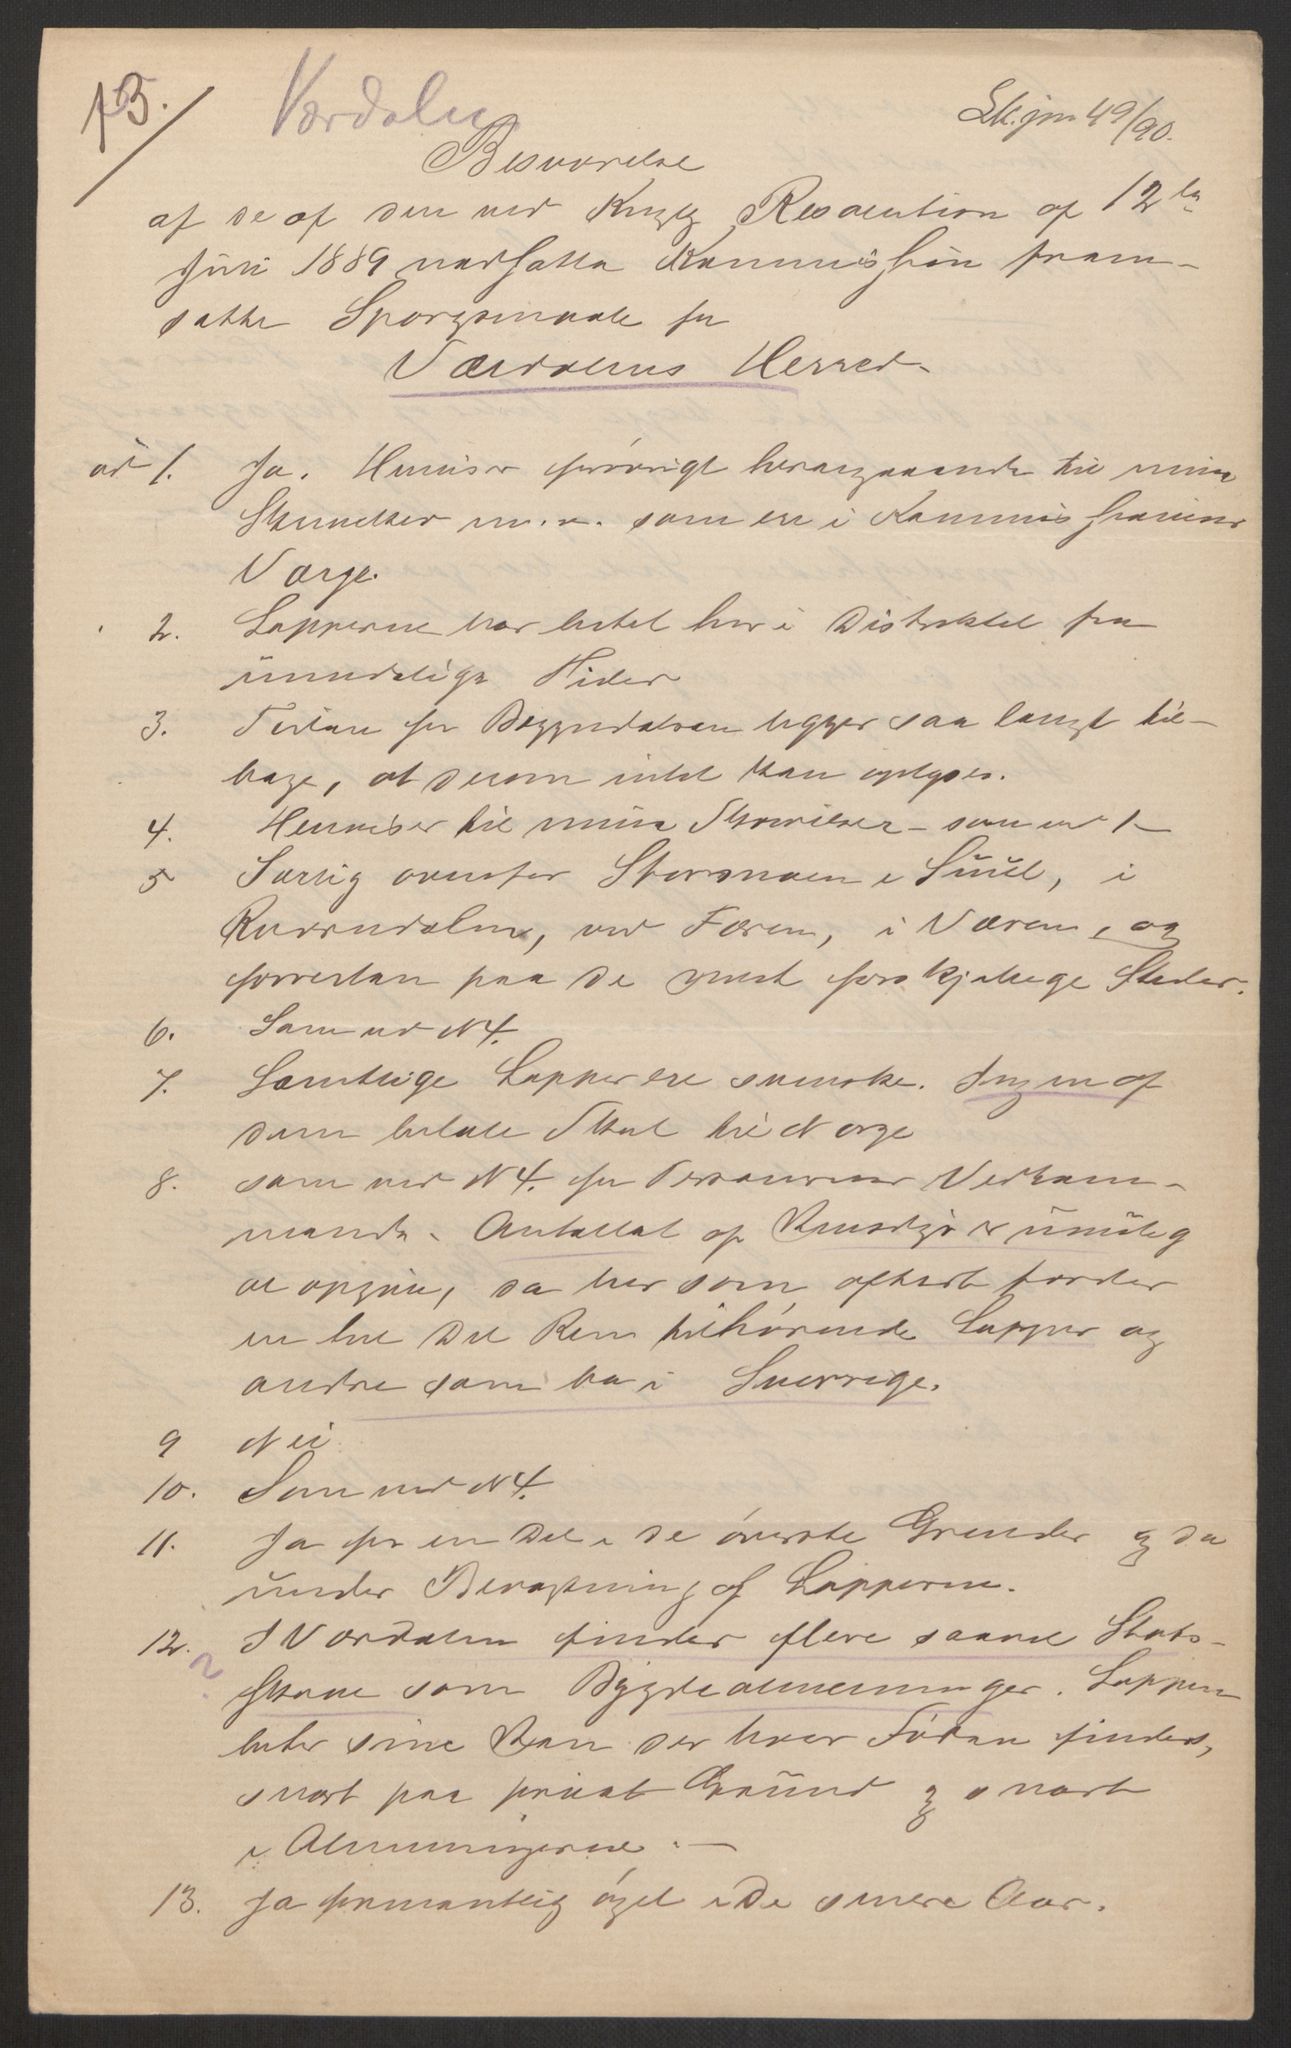 13.
Værdalen
Lk. jm 49/90.
Besvarelse
af de af den ved Kngl Resolution af 12te
Juli 1889 nedsatte Kommission frem-
satte Spørgsmaale for
Værdalens Herred.
ad 1. Ja. Henviser forøvrigt herangaaende til mine
Skrivelser m.v. som ere i Kommissionens
Værge.
2. Lapperne har beitet her i Distriktet fra
umindelige Tider
3. Tiden for Begyndelsen ligger saa langt til-
bage, at derom intet kan oplyses.
4. Henviser til mine Skrivelser – som ad 1 –
5 Særlig ovenfor Storsnaen i Suul, i
Raverdalen, ved Færen, i Væren, og
forresten paa de mest forskjellige Steder.
6. Som ad N 4.
7. Samtlige Lapper ere svenske. Ingen af
dem betale Skat til Norge
8. som ved N 4. for Personernes Vedkom-
mende. Antallet af Rensdyr er umulig
at opgive, da her som oftest færder
en hel Del Ren tilhørende Lapper og
andre som bo i Sverrige.
9 Nei
10. Som ved N 4.
11. Ja for en Del i de øverste Grender og da
under Bevogtning af Lapperne.
12. I Værdalen findes flere saavel Stats-
skove som Bygdealmenninger. Lapperne
beiter sine Ren der hvor Føden findes,
snart paa privat Grund og snart
i Almenningerne. –
13. Ja formentlig øget i de senere Aar.